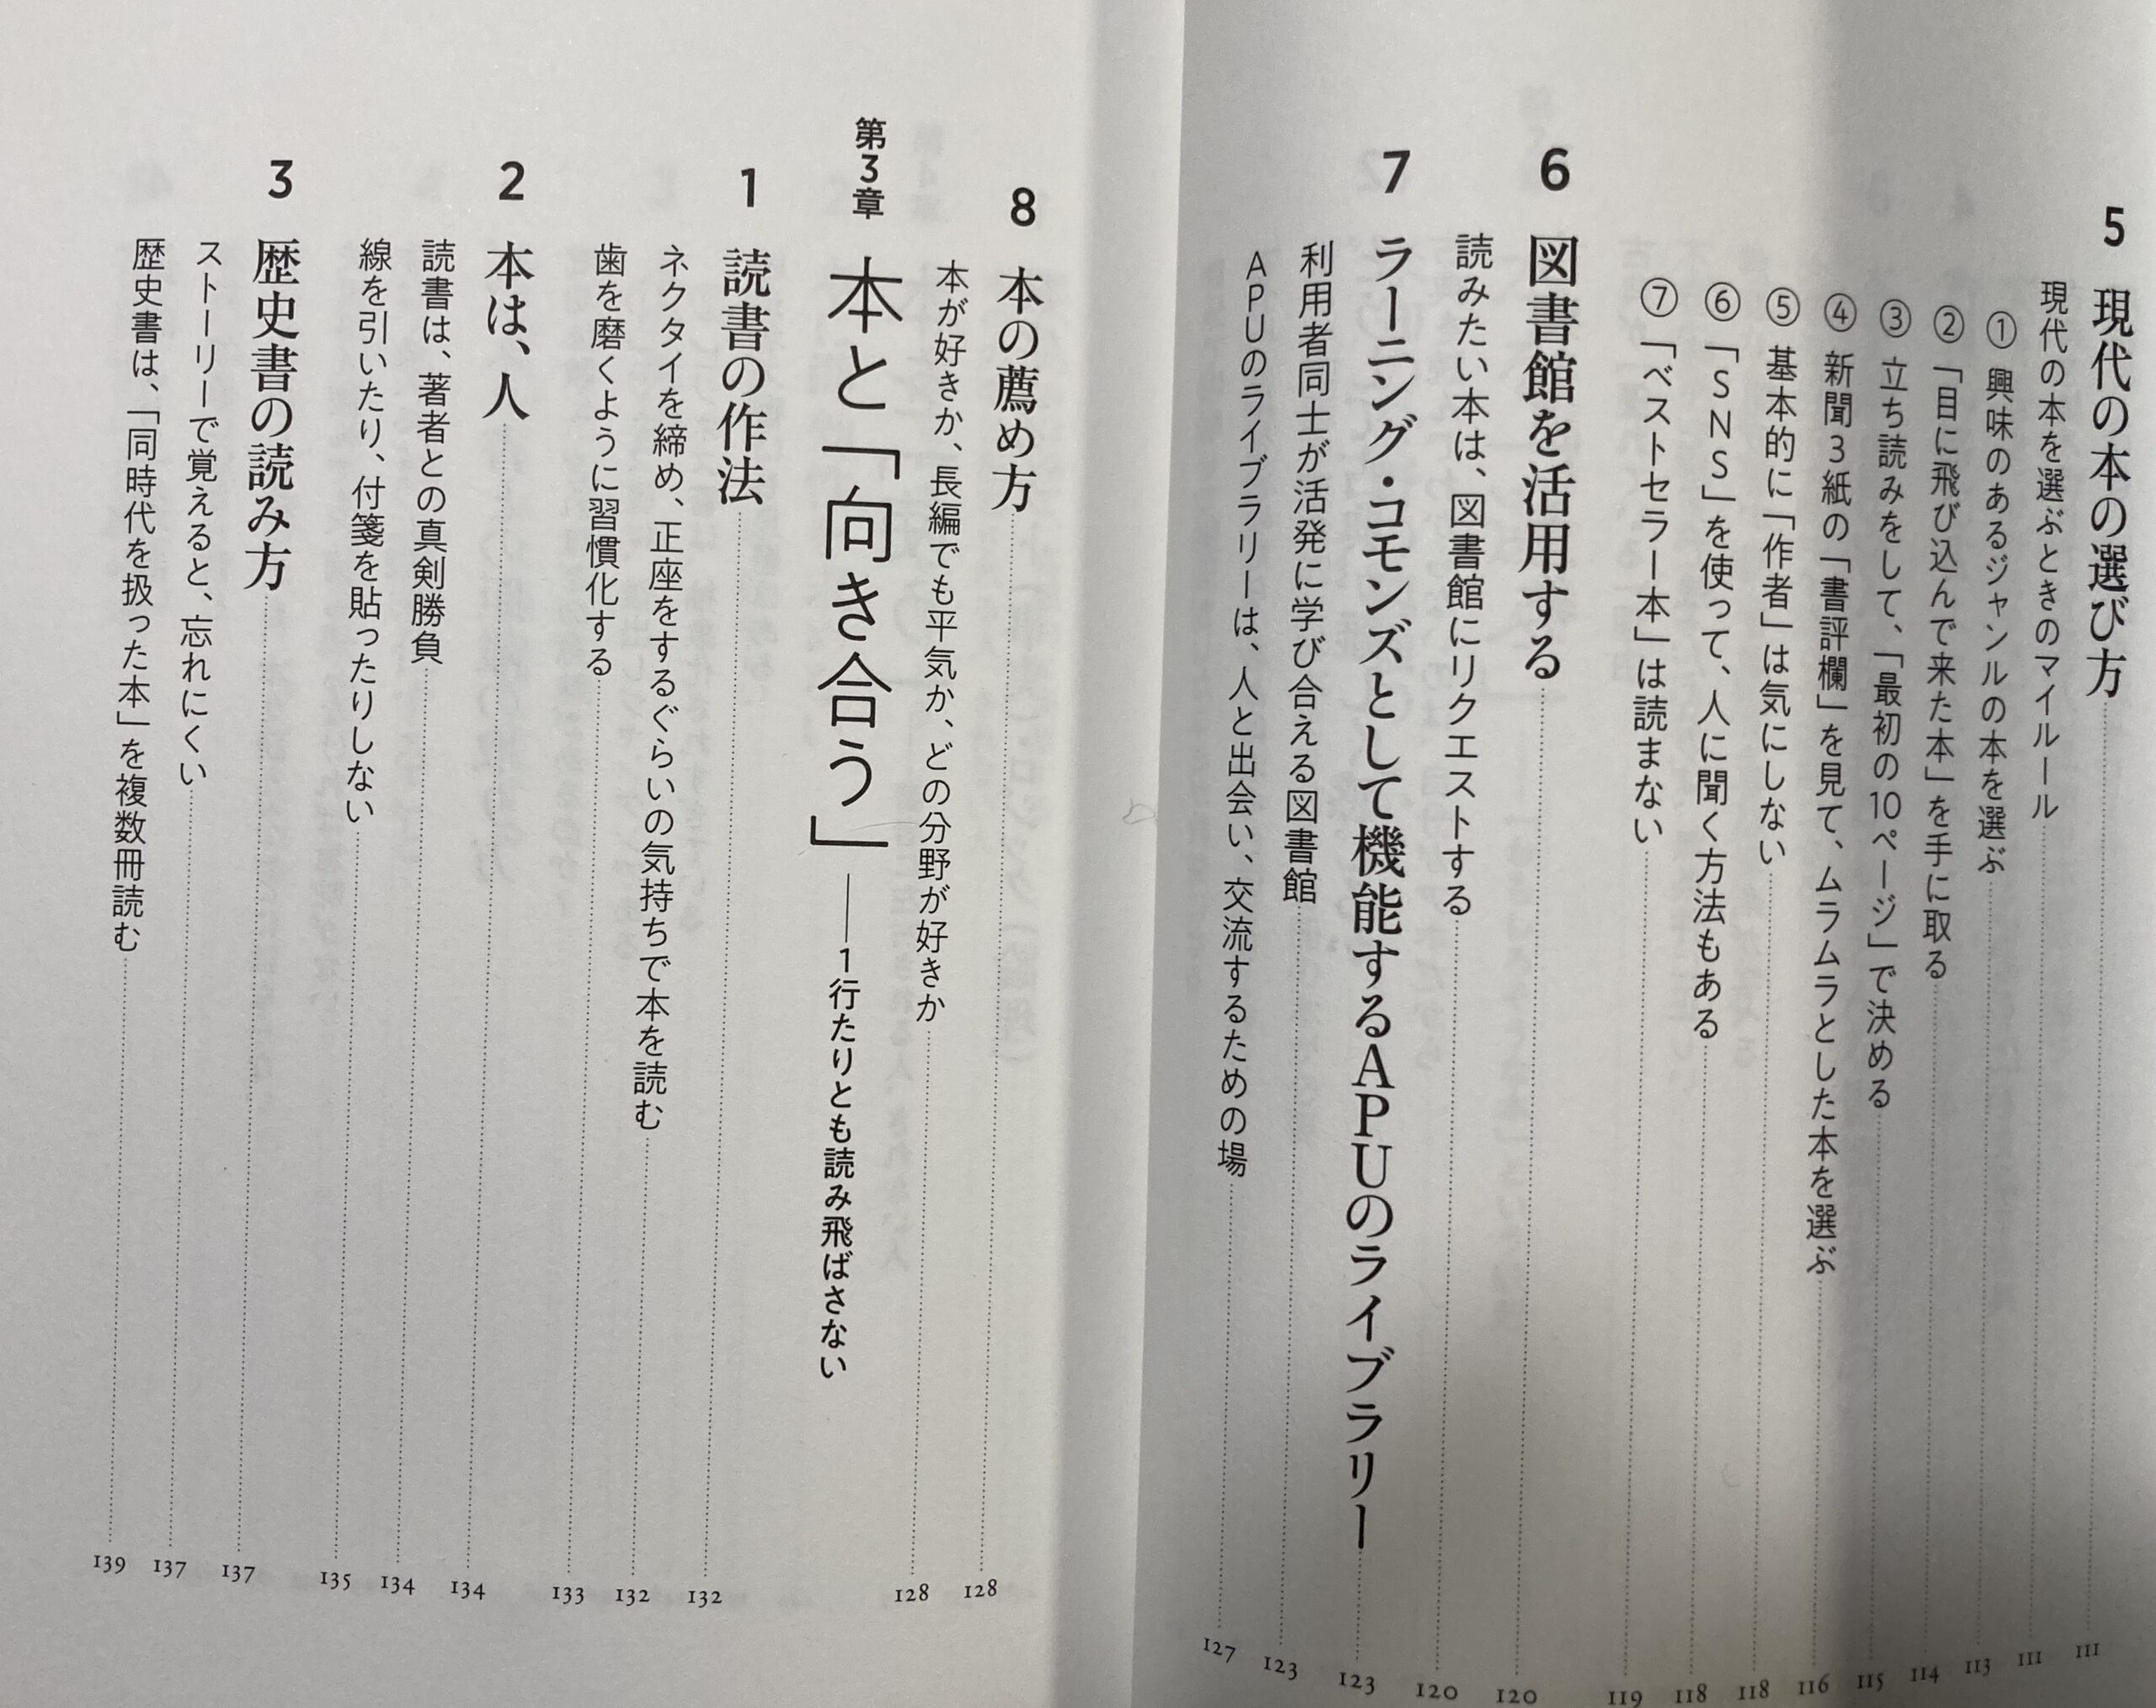 5 現代の本の選び方 111
現代の本を選ぶときのマイルール 111
① 興味のあるジャンルの本を選ぶ 113
② 「目に飛び込んで来た本」を手に取る 114
③ 立ち読みをして、「最初の10ページ」で決める 115
④ 新聞3紙の「書評欄」を見て、ムラムラとした本を選ぶ 116
⑤ 基本的に「作者」は気にしない 118
⑥ 「SNS」を使って、人に聞く方法もある 118
⑦ 「ベストセラー本」は読まない 119
6 図書館を活用する 120
読みたい本は、図書館にリクエストする 120
7 ラーニング・コモンズとして機能するAPUのライブラリー 123
利用者同士が活発に学び合える図書館 123
APUのライブラリーは、人と出会い、交流するための場 127
8 本の薦め方 128
本が好きか、長編でも平気か、どの分野が好きか 128
第3章 本と「向き合う」——1行たりとも読み飛ばさない
1 読書の作法 132
ネクタイを締め、正座をするぐらいの気持ちで本を読む 132
歯を磨くように習慣化する 133
2 本は、人 134
読書は、著者との真剣勝負 134
線を引いたり、付箋を貼ったりしない 135
3 歴史書の読み方 137
ストーリーで覚えると、忘れにくい 137
歴史書は、「同時代を扱った本」を複数冊読む 139